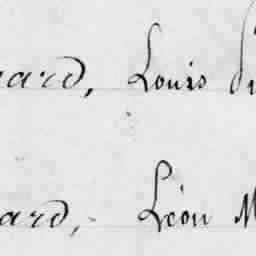 ard, Louis
ard, Léon M